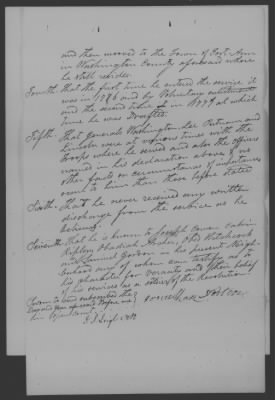 and then moved to the Town of Fort Ann
in Washington County aforesaid where
he Still resides.
Fourth That the first time he entered the service it
was in 1776 and by Voluntary enlistment
and the second time in 1777 at which
time he was Drafted.
Fifth. That Generals Washington, Lee Putnam and
Lincoln were at various times with the
troops where he served and also the officers
named in his declaration above, no
other facts or circumstances of importance
occur to him than those before stated
Sixth That he never received any written
discharge from the service as he
believes.
Seventh That he is known to Joseph
Obadiah Otis Hitchcock
and Samuel Gordon in his present Neigh-
borhood any of whom can testify as to
his character for veracity and their belief
of his services as a soldier of the Revolution
Sworn to and subscribed the
Day and Year aforesaid Before me